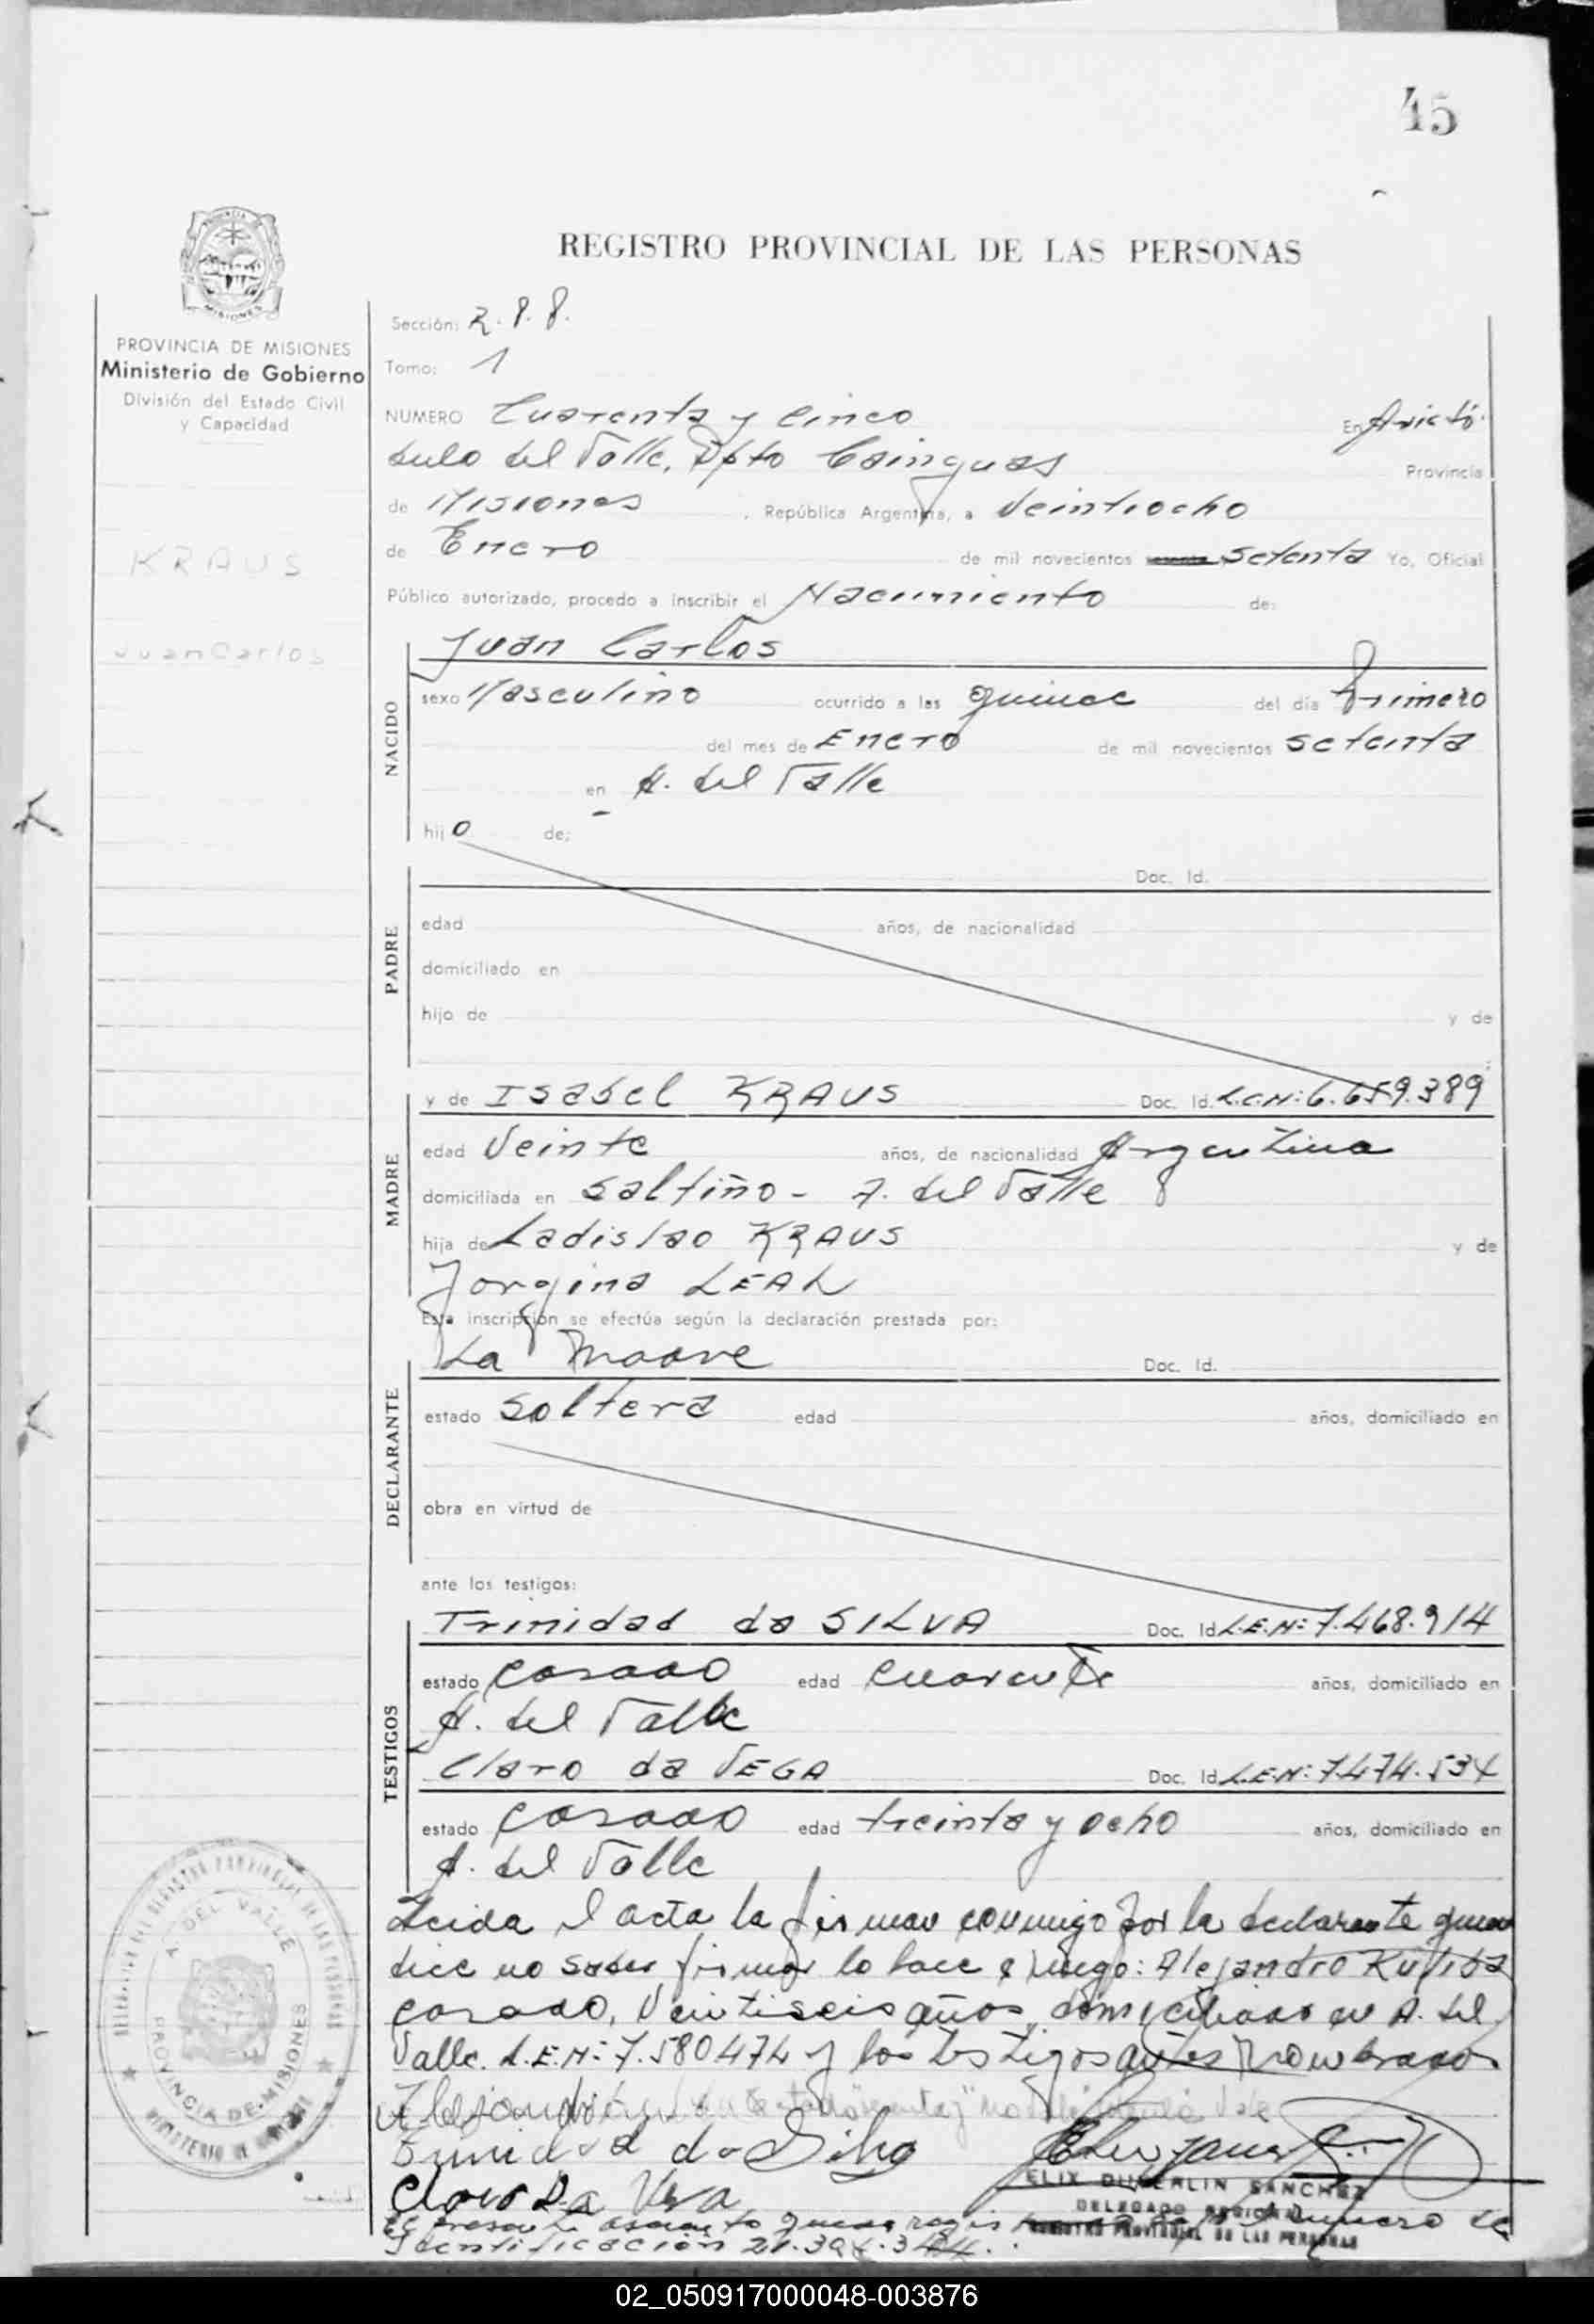 45
REGISTRO PROVINCIAL DE LAS PERSONAS
PROVINCIA DE MISIONES
Ministerio de Gobierno
División del Estado Civil
y Capacidad
KRAUS
Juan Carlos
Sección: R. P. P.
Tomo: 1
NUMERO Cuarenta y Cinco En Aristó-
bulo del Valle, Dpto Cainguas Provincia
de Misiones, República Argentina, a Veintiocho
de Enero de mil novecientos setenta Yo, Oficial
Público autorizado, procedo a inscribir el Nacimiento de:
NACIDO
Juan Carlos
sexo Masculino ocurrido a las quince del día Primero
del mes de Enero de mil novecientos setenta
en A. del Valle
hijo de:
PADRE
Doc. Id.
edad años, de nacionalidad
domiciliado en
hijo de y de
MADRE
y de Isabel KRAUS Doc. Id. L.C.N: 6.659.389
edad Veinte años, de nacionalidad Argentina
domiciliada en Saltiño - A. del Valle
hija de Ladislao KRAUS y de
Jorgina LEAL
Esta inscripción se efectúa según la declaración prestada por:
DECLARANTE
La madre Doc. Id.
estado Soltera edad años, domiciliado en
obra en virtud de
ante los testigos:
TESTIGOS
Trinidad da SILVA Doc. Id L.E.N: 7.468.914
estado Casado edad Cuarenta años, domiciliado en
A. del Valle
Claro da VEGA Doc. Id L.E.N: 7.474.534
estado Casado edad treinta y ocho años, domiciliado en
A. del Valle
Leida el acta la firman conmigo por la declarante quien
dice no saber firmar lo hace a ruego: Alejandro
casado, Veintiseis años, domiciliado en A. del
Valle. L.E.N: 7.580474 y los testigos antes nombrados
Alejandro
Trinidad da Silva
Claro Da Vega
ELIX SANCHEZ
DELEGADO REGIONAL
REGISTRO PROVINCIAL DE LAS PERSONAS
El presente asiento queda numero de
Identificación 21.304.3
A. DEL VALLE
PROVINCIA DE MISIONES
02_050917000048-003876